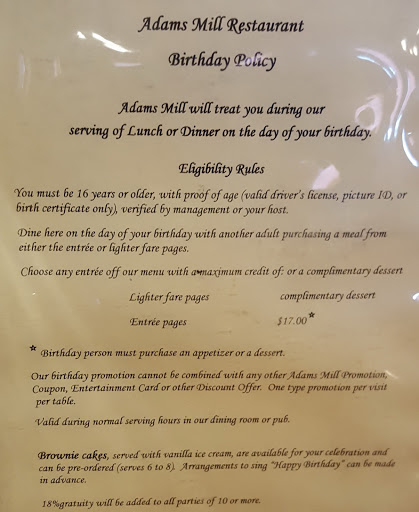 Adams Mill Restaurant
Birthday Policy
Adams Mill will treat you during our
serving of Lunch or Dinner on the day of your birthday.
Eligibility Rules
You must be 16 years or older, with proof of age (valid driver's license, picture ID, or
birth certificate only), verified by management or your host.
Dine here on the day of your birthday with another adult purchasing a meal from
either the entrée or lighter fare pages.
Choose any entrée off our menu with a maximum credit of: or a complimentary dessert
Lighter fare pages complimentary dessert
Entrée pages $17.00*
* Birthday person must purchase an appetizer or a dessert.
Our birthday promotion cannot be combined with any other Adams Mill Promotion,
Coupon, Entertainment Card or other Discount Offer. One type promotion per visit
per table.
Valid during normal serving hours in our dining room or pub.
Brownie cakes, served with vanilla ice cream, are available for your celebration and
can be pre-ordered (serves 6 to 8). Arrangements to sing "Happy Birthday" can be made
in advance.
18%gratuity will be added to all parties of 10 or more.